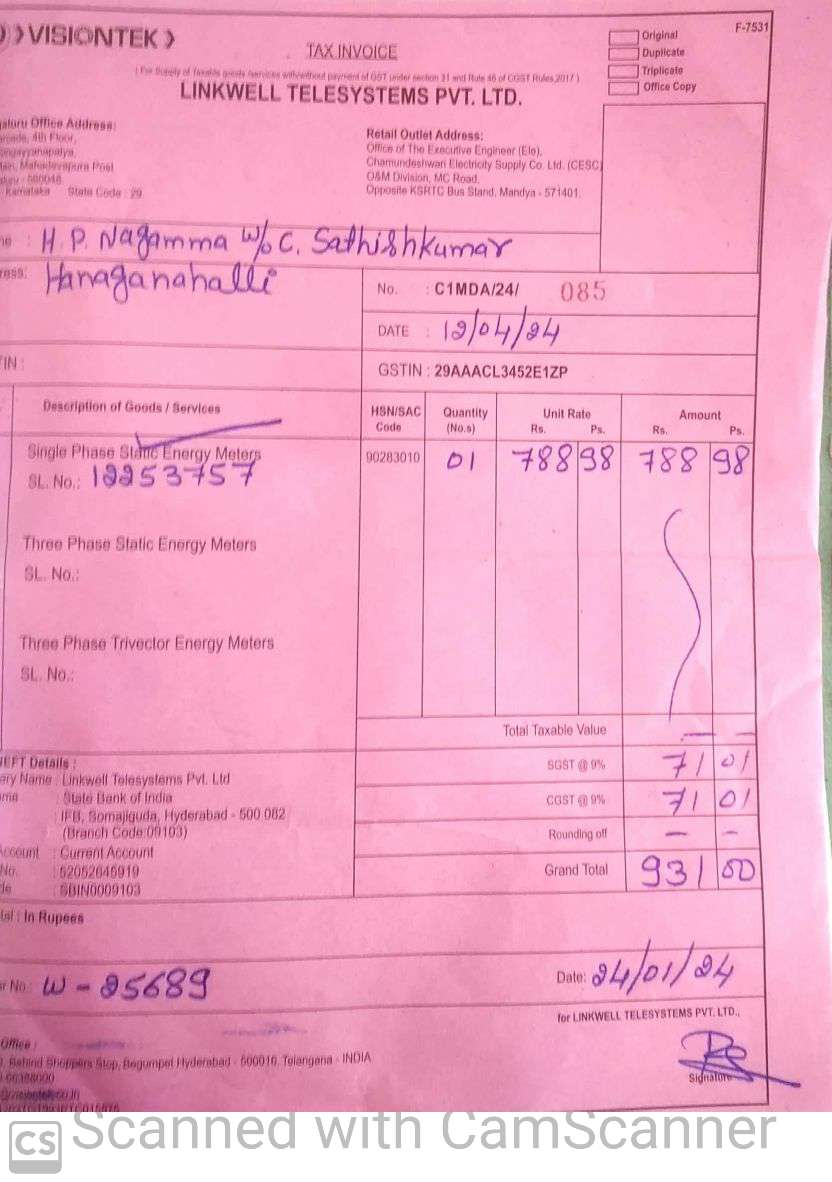 VISIONTEK
F-7531
Original
Duplicate
Triplicate
Office Copy
TAX INVOICE
( For Supply of Taxable goods /services with/without payment of GST under section 31 and Rule 46 of CGST Rules,2017 )
LINKWELL TELESYSTEMS PVT. LTD.
Office Address:
4th Floor,
Mahadevapura Post
State Code : 29
Retail Outlet Address:
Office of The Executive Engineer (Ele),
Chamundeshwari Electricity Supply Co. Ltd. (CESC)
O&M Division, MC Road,
Opposite KSRTC Bus Stand, Mandya - 571401.
: H. P. Nagamma W/o C. Sathishkumar
Hanaganahalli
No. : C1MDA/24/ 085
DATE : 12/04/24
GSTIN : 29AAACL3452E1ZP
Description of Goods / Services
HSN/SAC Code
Quantity (No.s)
Unit Rate Rs. Ps.
Amount Rs. Ps.
Single Phase Static Energy Meters 90283010 01 788 98 788 98
SL. No.: 12253757
Three Phase Static Energy Meters
SL. No.:
Three Phase Trivector Energy Meters
SL. No.:
Total Taxable Value — —
Details :
SGST @ 9% 71 01
Name : Linkwell Telesystems Pvt. Ltd
: State Bank of India
CGST @ 9% 71 01
: IFB, Somajiguda, Hyderabad - 500 082
(Branch Code:09103)
Rounding off — —
Account : Current Account
No. : 52052645919
Grand Total 931 00
: SBIN0009103
: In Rupees
No: W - 25689
Date: 24/01/24
for LINKWELL TELESYSTEMS PVT. LTD.,
Office :
Behind Shoppers Stop, Begumpet Hyderabad - 500016, Telangana - INDIA
Signature
CS Scanned with CamScanner